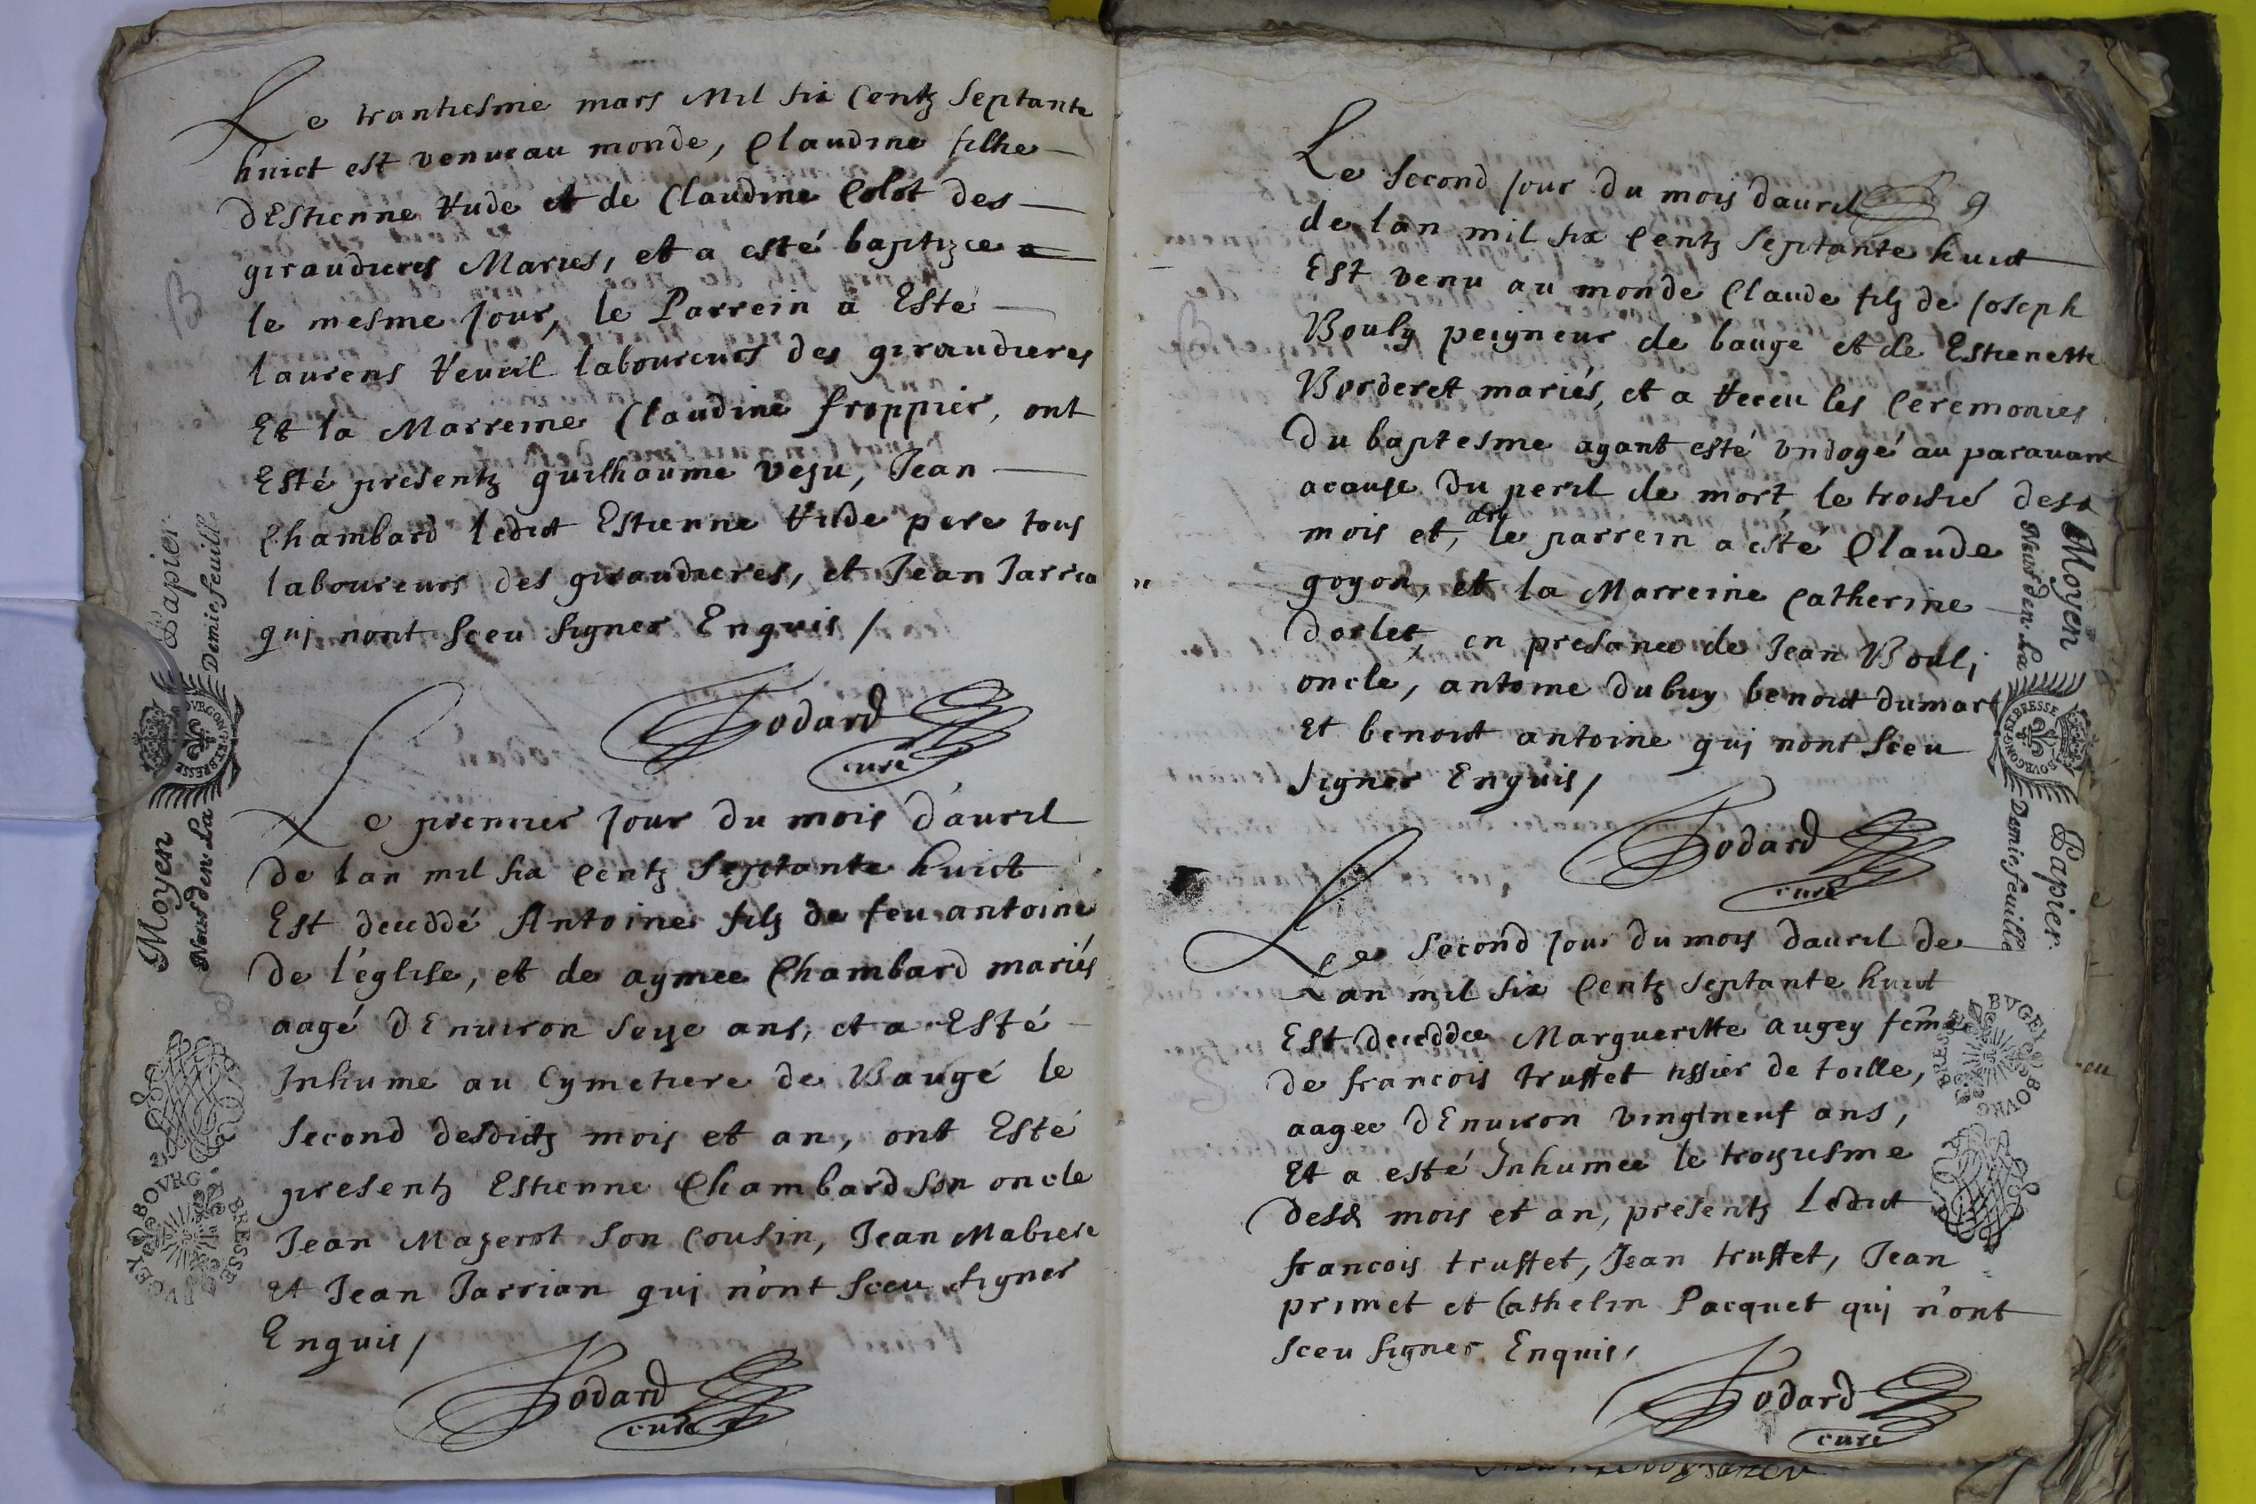 Le trantiesme mars Mil six Centz Septante
huict est venue au monde, Claudine filhe
dEstienne Rude et de Claudine Colot des
giraudieres Maries, et a esté baptizee
le mesme jour, le Parrein a Esté
laurens Reveil laboureurs des giraudieres
Et la Marreine Claudine froppier, ont
Esté presentz guilhaume vesu, Jean
Chambard ledict Estienne Rude pere tous
laboureurs des giraudieres, et Jean Jarria
qui nont sceu signer Enquis /
Bodard
curé
Le premier jour du mois d'avril
de lan mil six Centz Septante huict
Est deceddé Antoine filz de feu antoine
de l'église, et de aymee Chambard mariés
aagé dEnviron seze ans, et a Esté
Inhumé au Cymetiere de Baugé le
second desdictz mois et an, ont Esté
presentz Estienne Chambard son oncle
Jean Mazerot son Cousin, Jean Mabiere
Et Jean Jarrian qui n'ont sceu signer
Enquis /
Bodard
curé
Papier
Demie feuille
BOURGON. ET BRESSE
Moyen
Neuf den. La
BVGEY BOVRG BRESSE
9
Le Second jour du mois davril
de lan mil six Centz Septante huict
Est venu au monde Claude filz de Joseph
Bouly peigneur de bauge et de Estienette
Borderet mariés, et a Receu les Ceremonies
Du baptesme ayant esté undoyé au paravant
acause du peril de mort, le troisié desd
mois et an, le parrein a esté Claude
goyon, et la Marreine Catherine
dorlet en presance de Jean Bouli
oncle, antoine dubuy benoict dumar
Et benoict antoine qui nont sceu
signer Enquis /
Bodard
curé
Le Second jour du mois davril de
Lan mil six Centz Septante huict
Est deceddee Margueritte augey feme
de francois truffet tissier de toille,
aagee dEnviron vingtneuf ans,
Et a esté Inhumee le troyziesme
desd mois et an, presentz Ledict
francois truffet, Jean truffet, Jean
primet et Cathelin Pacquet qui n'ont
sceu signer Enquis,
Bodard
curé
Moyen
Neuf den. La
BOURGON. ET BRESSE
Papier
Demie feuille
BVGEY BOVRG BRESSE